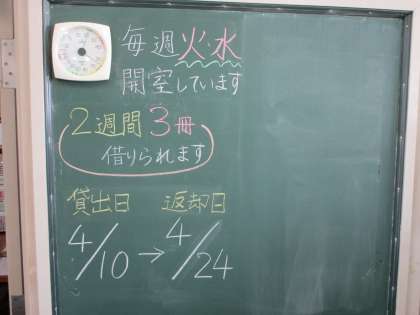 毎週火・水
開室しています
2週間3冊
借りられます
貸出日 返却日
4/10→4/24